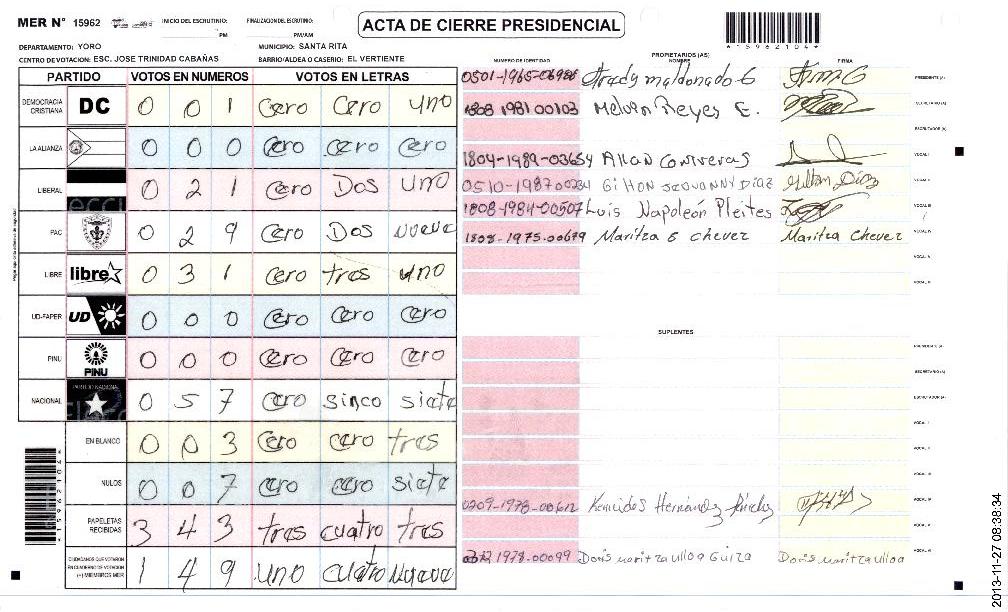 MER N° 15962 INICIO DEL ESCRUTINIO: PM FINALIZACION DEL ESCRUTINIO: PM/AM
ACTA DE CIERRE PRESIDENCIAL
*15962104*
DEPARTAMENTO: YORO MUNICIPIO: SANTA RITA
CENTRO DE VOTACION: ESC. JOSE TRINIDAD CABAÑAS BARRIO/ALDEA O CASERIO: EL VERTIENTE
PARTIDO VOTOS EN NUMEROS VOTOS EN LETRAS
DEMOCRACIA CRISTIANA DC 0 0 1 Cero Cero uno
LA ALIANZA 0 0 0 Cero Cero Cero
LIBERAL 0 2 1 Cero Dos uno
PAC 0 2 9 Cero Dos nueve
LIBRE libre 0 3 1 Cero tres uno
UD-FAPER UD 0 0 0 Cero Cero Cero
PINU PINU 0 0 0 Cero Cero Cero
NACIONAL PARTIDO NACIONAL 0 5 7 Cero sinco siete
EN BLANCO 0 0 3 Cero cero tres
NULOS 0 0 7 Cero cero siete
PAPELETAS RECIBIDAS 3 4 3 tres cuatro tres
CIUDADANOS QUE VOTARON EN CUADERNO DE VOTACION (+) MIEMBROS MER 1 4 9 uno cuatro Nueve
PROPIETARIOS (AS)
NUMERO DE IDENTIDAD NOMBRE FIRMA
maldonado G PRESIDENTE (A)
1808 1981 00103 Melvin Reyes E. SECRETARIO (A)
ESCRUTADOR (A)
1804-1989-03654 Allan Contreras VOCAL I
GiltON JEOVANNY DIAZ Gilton Diaz VOCAL II
1808-1984-00507 Luis Napoleón Pleites VOCAL III
1808-1975-00679 Maritza G chever Maritza Chever VOCAL IV
VOCAL V
VOCAL VI
SUPLENTES
PRESIDENTE (A)
SECRETARIO (A)
ESCRUTADOR (A)
VOCAL I
VOCAL II
VOCAL III
0209-1978-00612 Hernández VOCAL IV
VOCAL V
1978-00099 Doris maritza ulloa Doris maritza ulloa VOCAL VI
*15962104*
2013-11-27 08:38:34